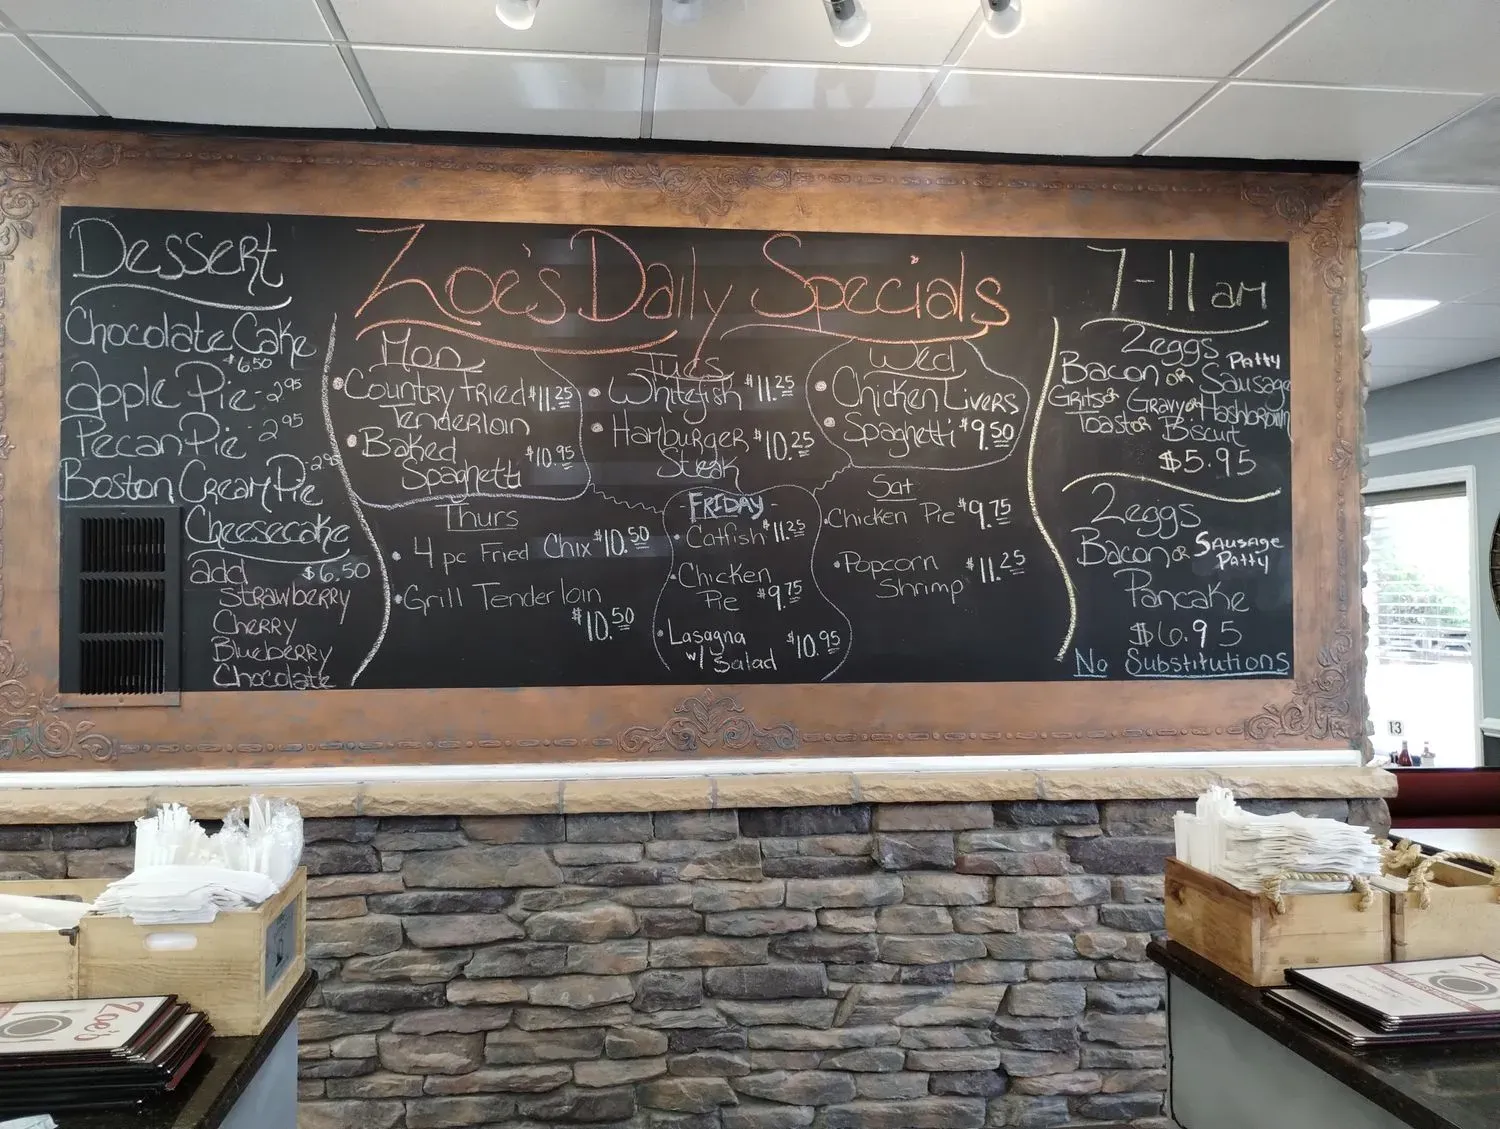 Dessert
Chocolate Cake
$6.50
Apple Pie - 2.95
Pecan Pie - 2.95
Boston Cream Pie - 2.95
Cheesecake
add $6.50
Strawberry
Cherry
Blueberry
Chocolate
Zoe's Daily Specials
Mon
Country Fried $11.25
Tenderloin
Baked
Spaghetti $10.95
Tues
Whitefish $11.25
Hamburger $10.25
Steak
Wed
Chicken Livers
Spaghetti $9.50
Thurs
4 pc Fried Chix $10.50
Grill Tenderloin
$10.50
- FRIDAY -
Catfish $11.25
Chicken
Pie $9.75
Lasagna
w/ Salad $10.95
Sat
Chicken Pie $9.75
Popcorn
Shrimp $11.25
7-11 am
2 eggs
Bacon or Sausage Patty
Grits or Gravy or Hashbrown
Toast or Biscuit
$5.95
2 eggs
Bacon or Sausage
Patty
Pancake
$6.95
No Substitutions
13
Zoe's